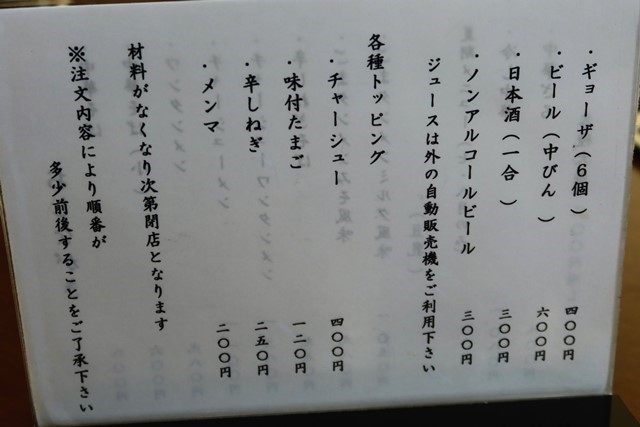 ・ギョーザ(6個) 四〇〇円
・ビール(中びん) 六〇〇円
・日本酒(一合) 三〇〇円
・ノンアルコールビール 三〇〇円
ジュースは外の自動販売機をご利用下さい
各種トッピング
・チャーシュー 四〇〇円
・味付たまご 一二〇円
・辛しねぎ 二五〇円
・メンマ 二〇〇円
材料がなくなり次第閉店となります
※注文内容により順番が
多少前後することをご了承下さい